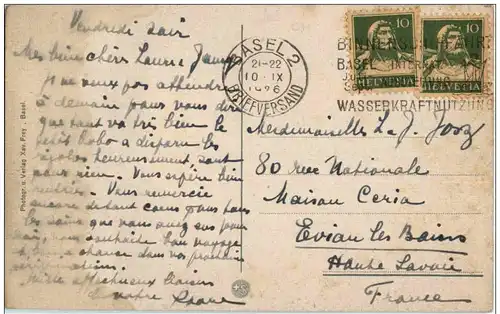 Vendredi soir
Mes bien chère Laurie Jane
je ne veux pas attendre
à demain pour vous dire
que tant va très bien le
petit bobo a disparu les
heureusement, tant
pour rien. Vous espère bien
rentrées. Vous remercie
encore de tant pour
les soins que vous avez eus pour
vous souhaite bon voyage
et bonne chance dans vos prochain
affectueux baisers
votre
Photogr. u. Verlag Xav. Frey, Basel.
BASEL 2
21-22
10.IX
1926
BRIEFVERSAND
BASEL INTERNAT
WASSERKRAFTNUTZUNG
10
HELVETIA
10
HELVETIA
Mesdemoiselles L. J. Jorg
80 rue Nationale
Maison Ceria
Evian les Bains
Haute Savoie
France